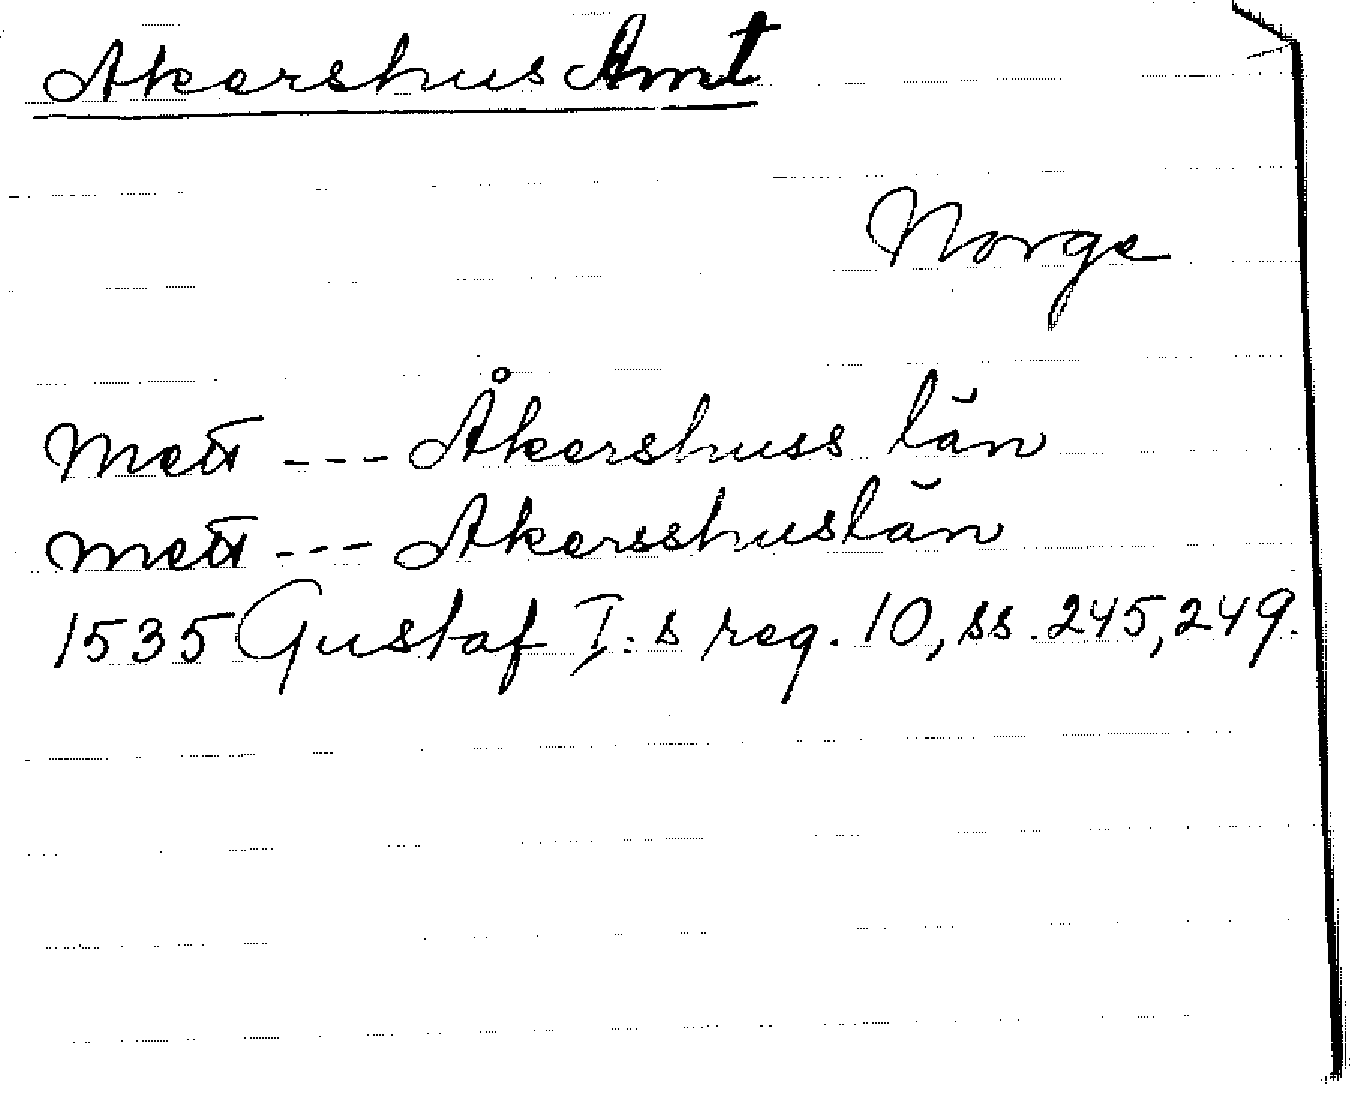 Akershus Amt
Norge
Mett --- Åkershuss län
mett --- Akersshuslän
1535 Gustaf I:s reg. 10, ss. 245, 249.